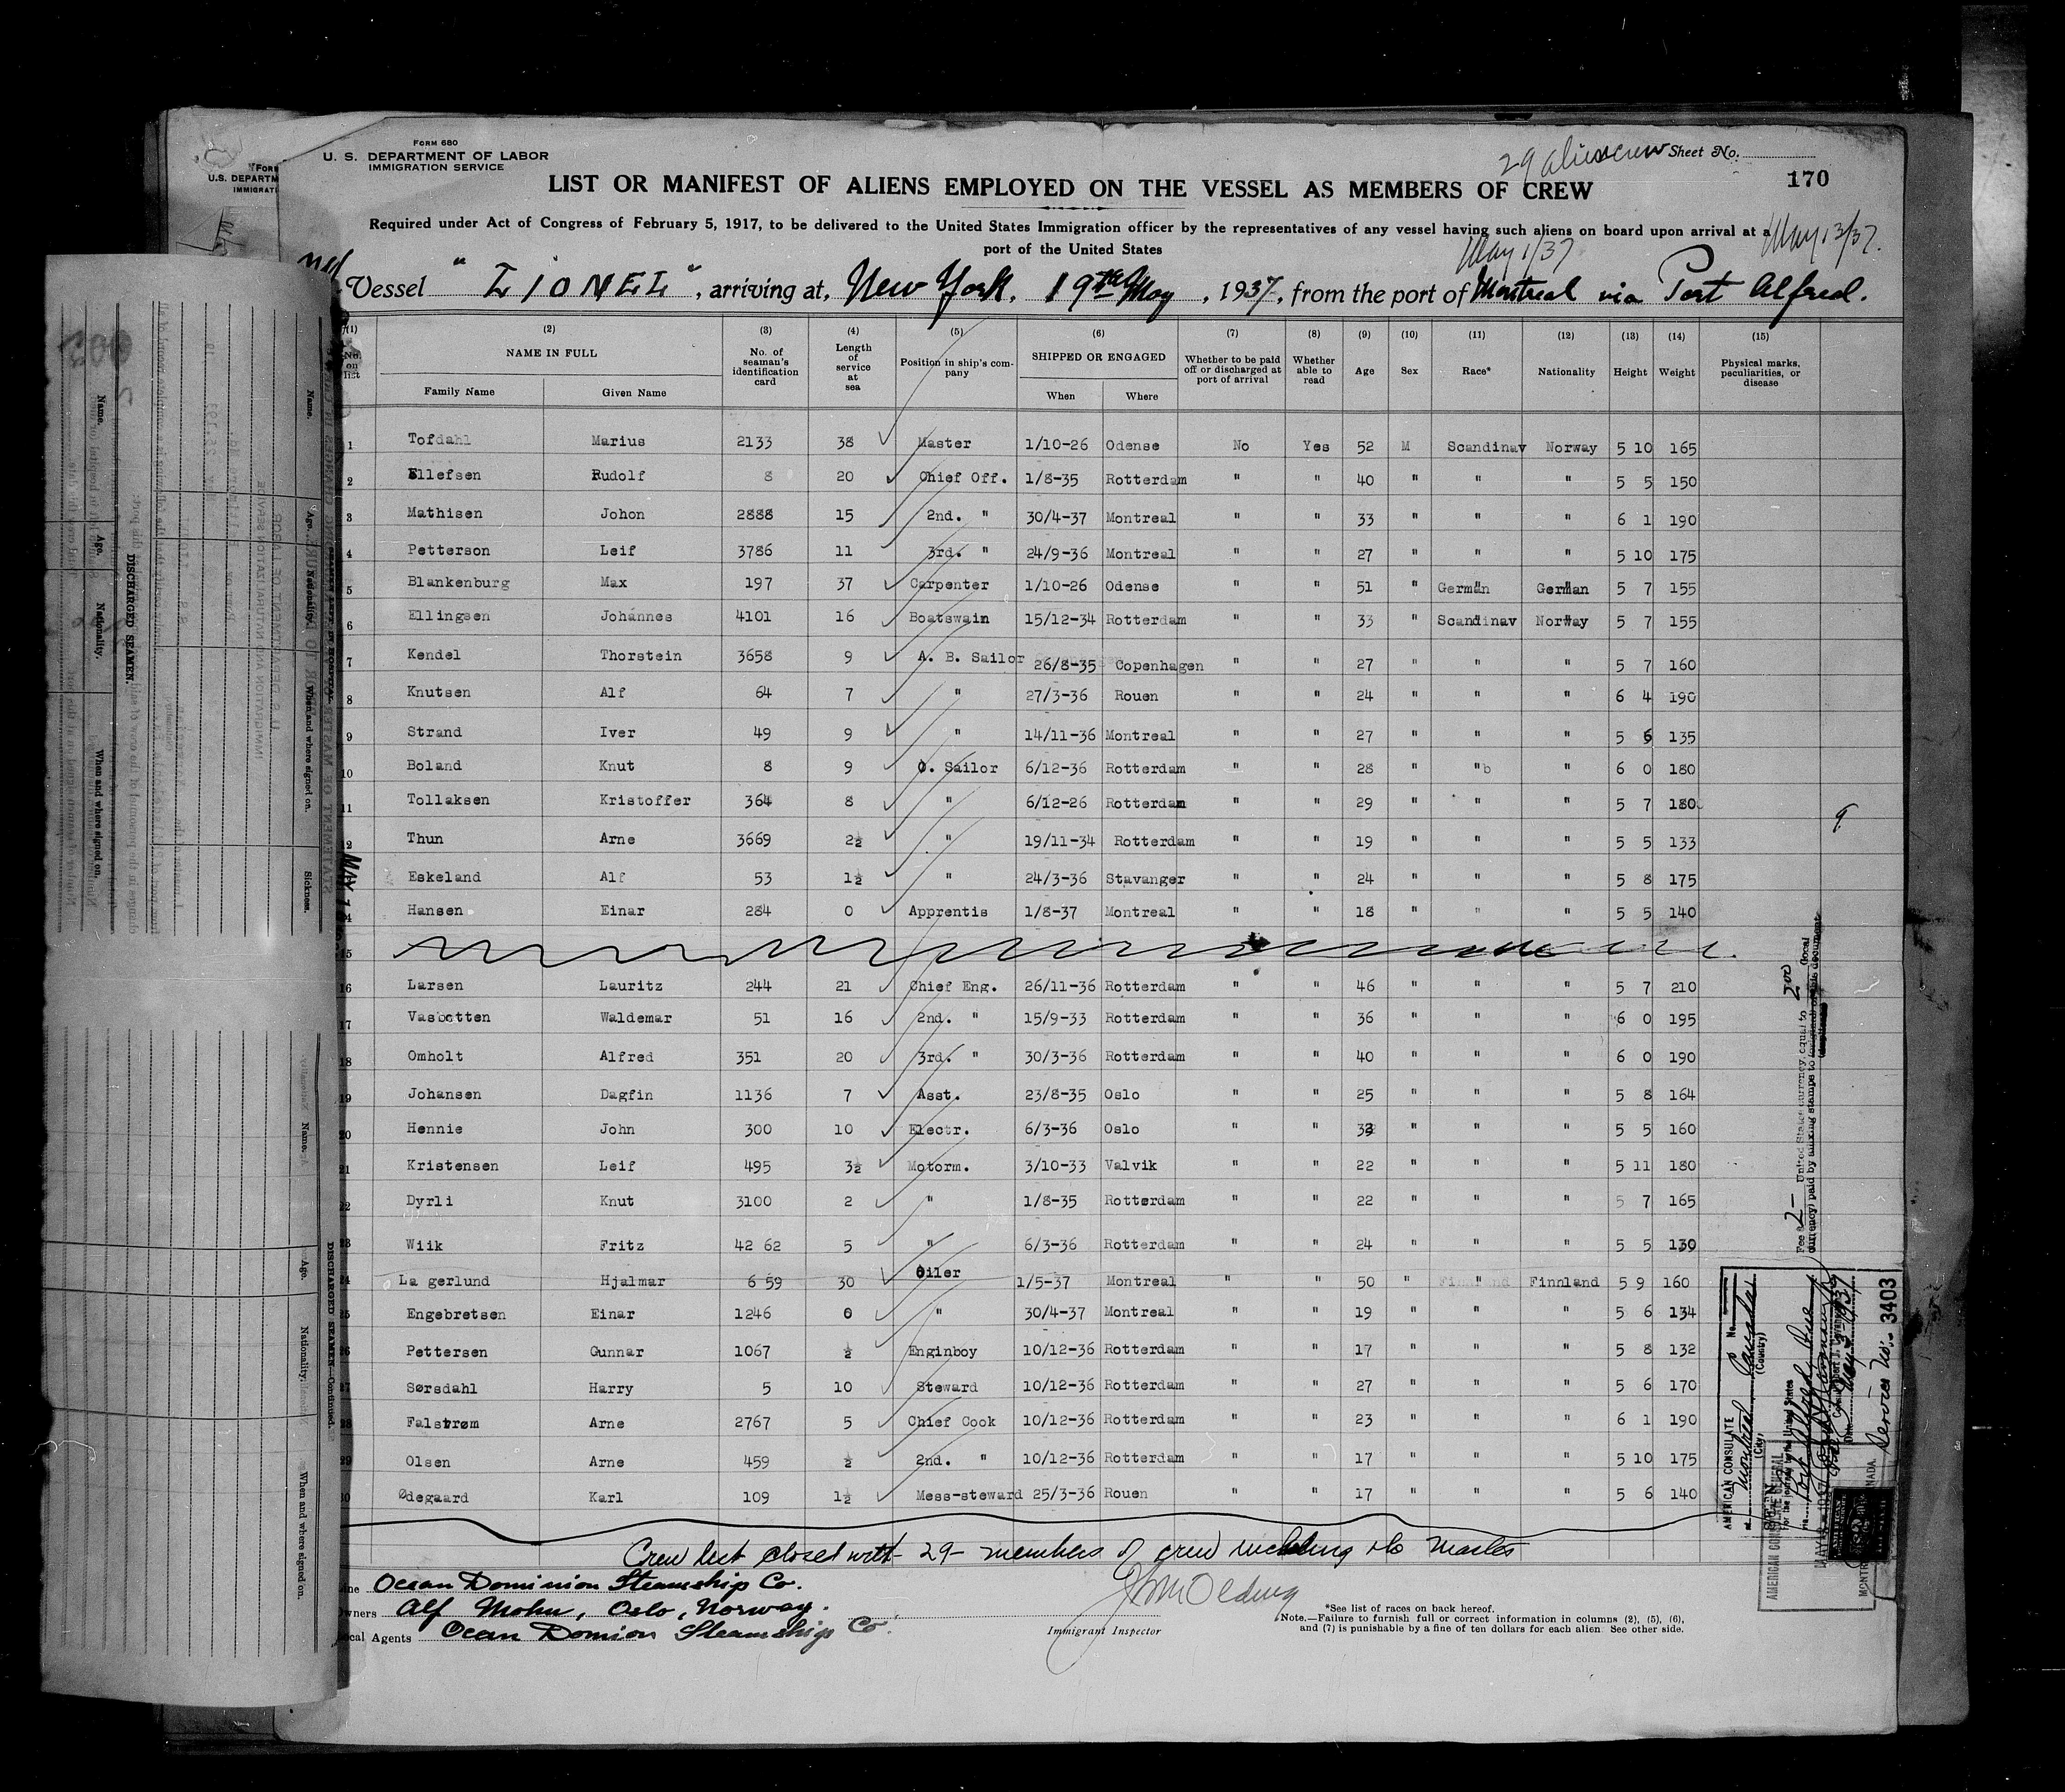 FORM 680
U. S. DEPARTMENT OF LABOR
IMMIGRATION SERVICE
29 alien crew Sheet No.
170
LIST OR MANIFEST OF ALIENS EMPLOYED ON THE VESSEL AS MEMBERS OF CREW
Required under Act of Congress of February 5, 1917, to be delivered to the United States Immigration officer by the representatives of any vessel having such aliens on board upon arrival at a
port of the United States
May 1/37 May 13/37.
Vessel "LIONEL", arriving at, New York, 19th May, 1937, from the port of Montreal via Port Alfred.
(1) (2) (3) (4) (5) (6) (7) (8) (9) (10) (11) (12) (13) (14) (15)
No. on list NAME IN FULL Family Name Given Name No. of seaman's identification card Length of service at sea Position in ship's company SHIPPED OR ENGAGED When Where Whether to be paid off or discharged at port of arrival Whether able to read Age Sex Race* Nationality Height Weight Physical marks, peculiarities, or disease
1 Tofdahl Marius 2133 38 Master 1/10-26 Odense No Yes 52 M Scandinav Norway 5 10 165
2 Ellefsen Rudolf 8 20 Chief Off. 1/8-35 Rotterdam " " 40 " " " 5 5 150
3 Mathisen Johon 2888 15 2nd. " 30/4-37 Montreal " " 33 " " " 6 1 190
4 Petterson Leif 3786 11 3rd. " 24/9-36 Montreal " " 27 " " " 5 10 175
5 Blankenburg Max 197 37 Carpenter 1/10-26 Odense " " 51 " German German 5 7 155
6 Ellingsen Johannes 4101 16 Boatswain 15/12-34 Rotterdam " " 33 " Scandinav Norway 5 7 155
7 Kendel Thorstein 3658 9 A. B. Sailor 26/8-35 Copenhagen " " 27 " " " 5 7 160
8 Knutsen Alf 64 7 " 27/3-36 Rouen " " 24 " " " 6 4 190
9 Strand Iver 49 9 " 14/11-36 Montreal " " 27 " " " 5 6 135
10 Boland Knut 8 9 O. Sailor 6/12-36 Rotterdam " " 28 " "b " 6 0 180
11 Tollaksen Kristoffer 364 8 " 6/12-26 Rotterdam " " 29 " " " 5 7 180
12 Thun Arne 3669 2½ " 19/11-34 Rotterdam " " 19 " " " 5 5 133
Eskeland Alf 53 1½ " 24/3-36 Stavanger " " 24 " " " 5 8 175
Hansen Einar 284 0 Apprentis 1/8-37 Montreal " " 18 " " " 5 5 140
15
16 Larsen Lauritz 244 21 Chief Eng. 26/11-36 Rotterdam " " 46 " " " 5 7 210
17 Vasbotten Waldemar 51 16 2nd. " 15/9-33 Rotterdam " " 36 " " " 6 0 195
18 Omholt Alfred 351 20 3rd. " 30/3-36 Rotterdam " " 40 " " " 6 0 190
19 Johansen Dagfin 1136 7 Asst. 23/8-35 Oslo " " 25 " " " 5 8 164
20 Hennie John 300 10 Electr. 6/3-36 Oslo " " " " " 5 5 160
21 Kristensen Leif 495 3½ Motorm. 3/10-33 Valvik " " 22 " " " 5 11 180
22 Dyrli Knut 3100 2 " 1/8-35 Rotterdam " " 22 " " " 5 7 165
23 Wiik Fritz 42 62 5 " 6/3-36 Rotterdam " " 24 " " " 5 5 130
24 La gerlund Hjalmar 6 59 30 Oiler 1/5-37 Montreal " " 50 " " Finnland 5 9 160
25 Engebretsen Einar 1246 0 " 30/4-37 Montreal " " 19 " " " 5 6 134
26 Pettersen Gunnar 1067 ½ Enginboy 10/12-36 Rotterdam " " 17 " " " 5 8 132
27 Sørsdahl Harry 5 10 Steward 10/12-36 Rotterdam " " 27 " " " 5 6 170
28 Falstrøm Arne 2767 5 Chief Cook 10/12-36 Rotterdam " " 23 " " " 6 1 190
29 Olsen Arne 459 ½ 2nd. " 10/12-36 Rotterdam " " 17 " " " 5 10 175
30 Ødegaard Karl 109 1½ Mess-steward 25/3-36 Rouen " " 17 " " " 5 6 140
Crew list closed with 29 members of crew including the Master
Line Ocean Dominion Steamship Co.
Owners Alf Mohn, Oslo, Norway.
Local Agents Ocean Domion Steamship Co.
Immigrant Inspector
*See list of races on back hereof.
Note.—Failure to furnish full or correct information in columns (2), (5), (6),
and (7) is punishable by a fine of ten dollars for each alien. See other side.
AMERICAN CONSULATE
Montreal Canada
(City) (Country)
SEEN
For the journey to the United States
AMERICAN CONSULATE GENERAL
Service No. 3403
DISCHARGED SEAMEN.
Name. Age. Nationality. When and where signed on.
DISCHARGED SEAMEN—Continued.